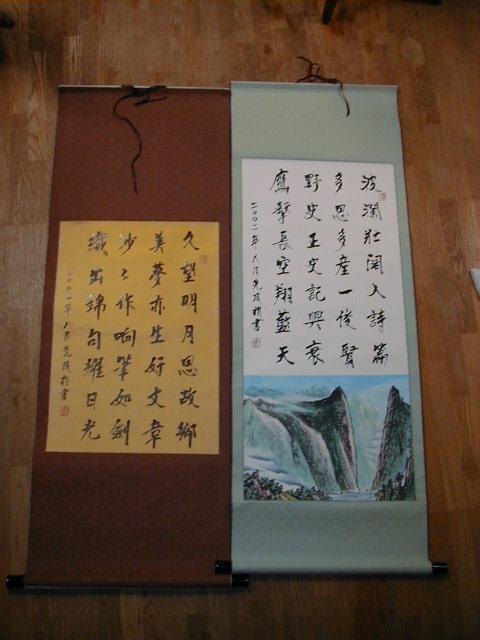 波瀾壯闊入詩篇
多思多產一俊賢
野史正史記興衰
鷹擊長空翔藍天
二〇〇二年八月書
久望明月思故鄉
美夢亦生好文章
沙々作响筆如劍
織出錦句耀日光
二〇〇一年八月書